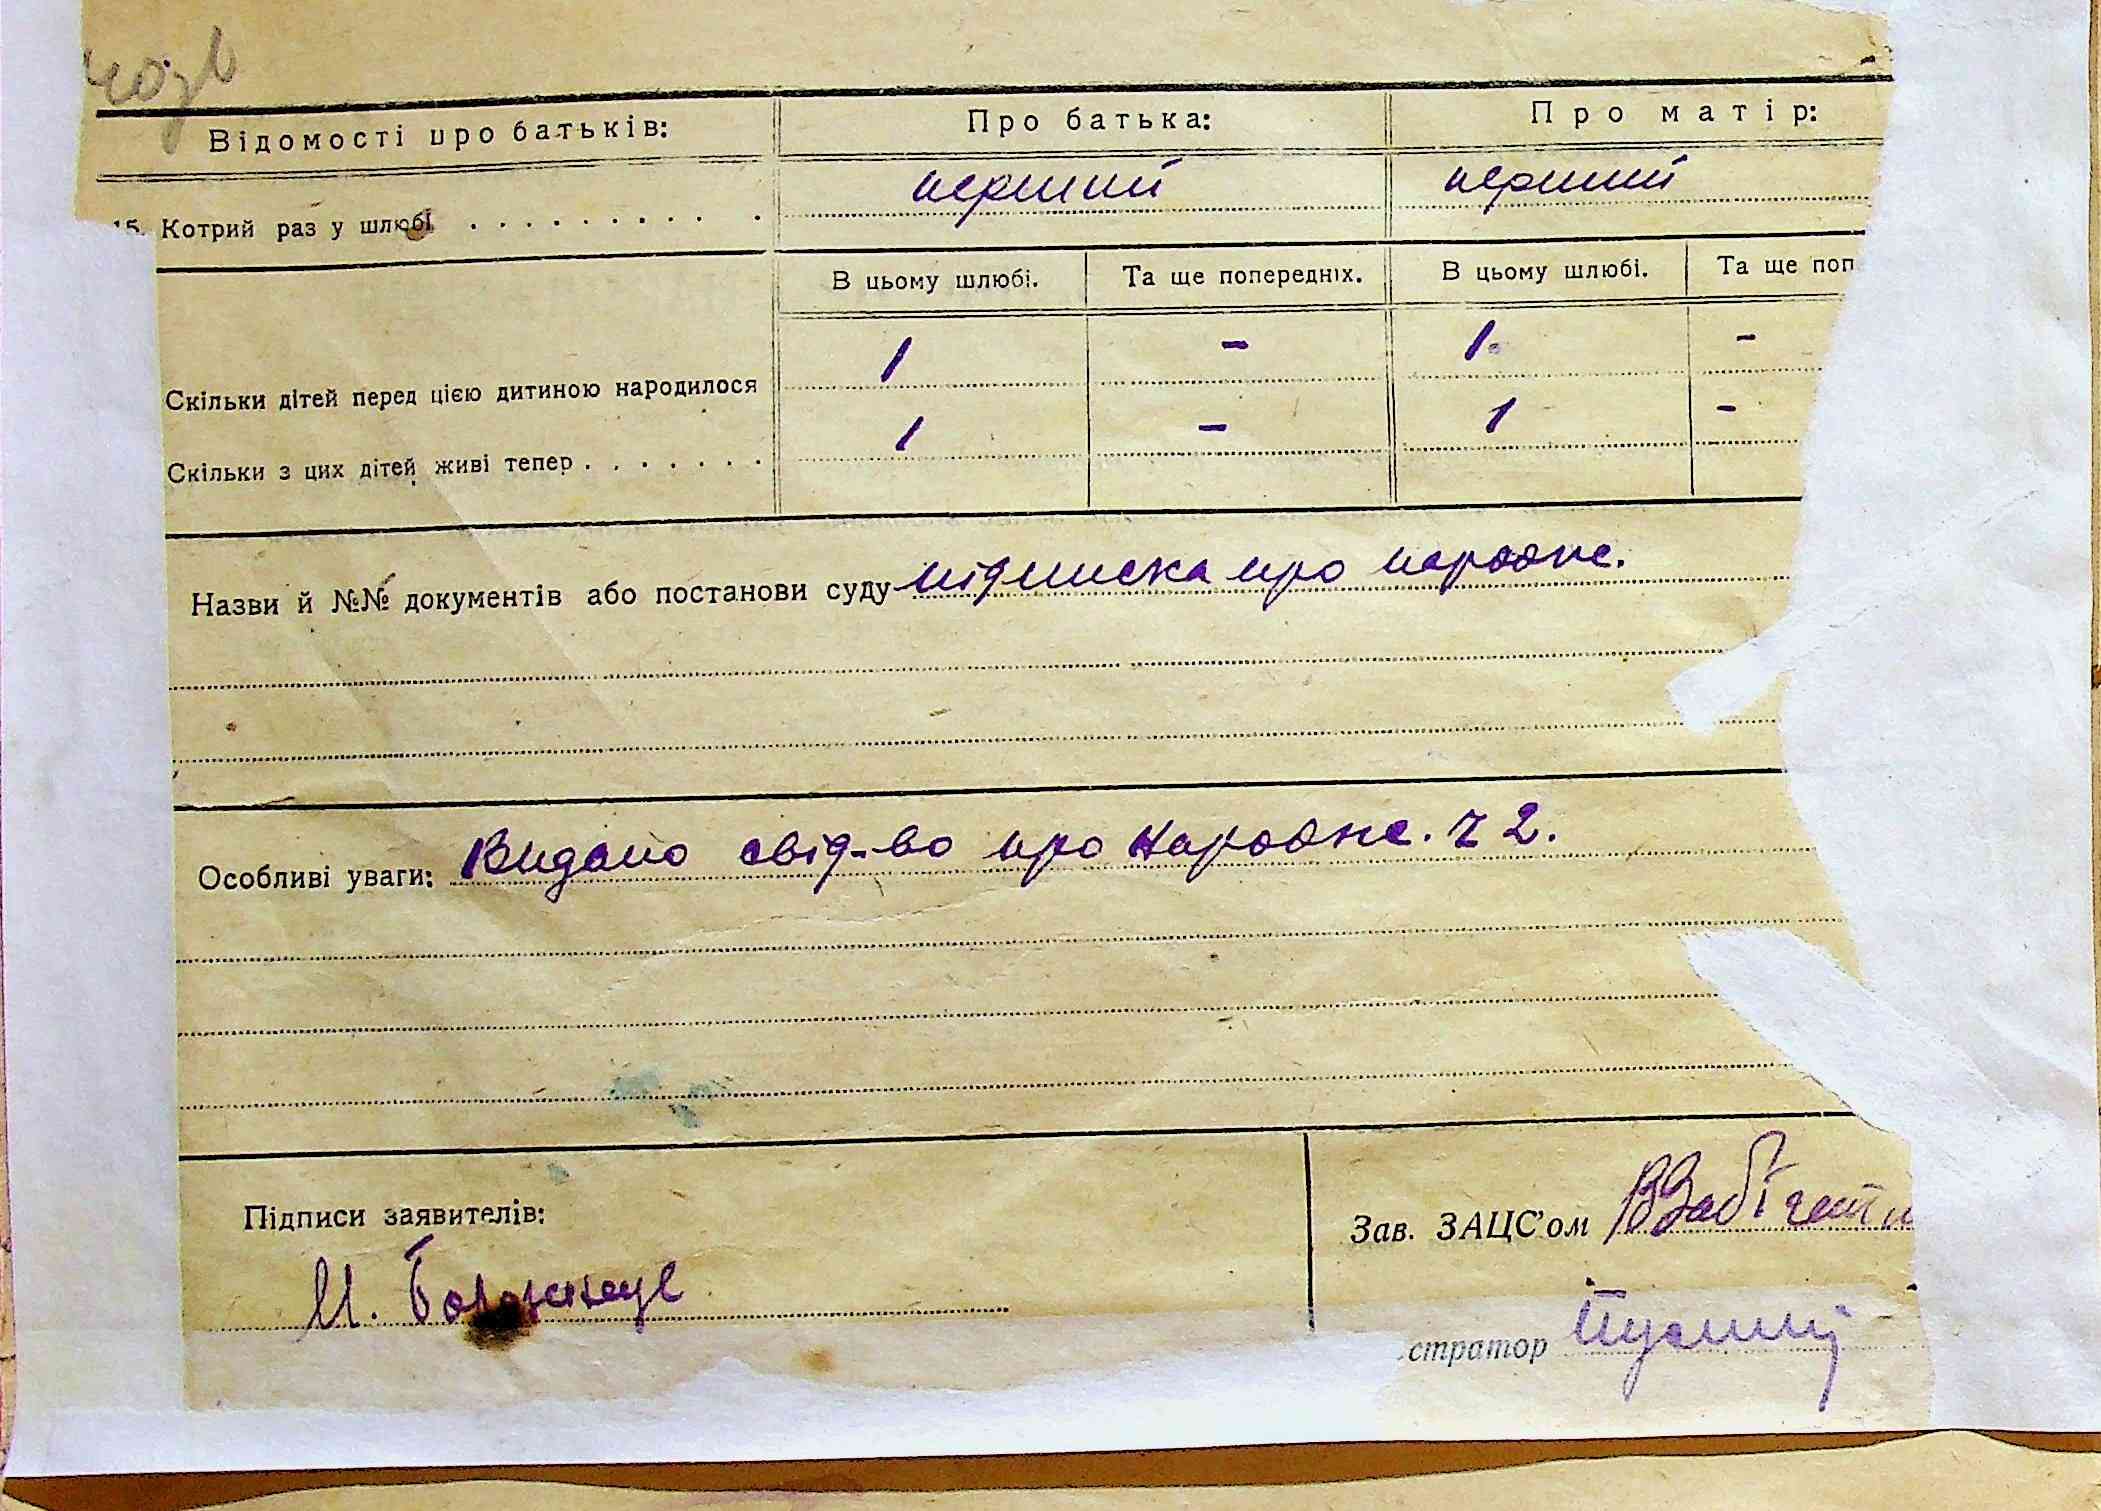 Відомості про батьків: Про батька: Про матір:
15. Котрий раз у шлюбі . . . . . . . . . . перший перший
В цьому шлюбі. Та ще попередніх. В цьому шлюбі. Та ще поп
Скільки дітей перед цією дитиною народилося 1 - 1. -
Скільки з цих дітей живі тепер . . . . . . . 1 - 1 -
Назви й №№ документів або постанови суду підписка про народж.
Особливі уваги: Видано свід-во про народж. ч 2.
Підписи заявителів:
Зав. ЗАЦС'ом
М.
стратор